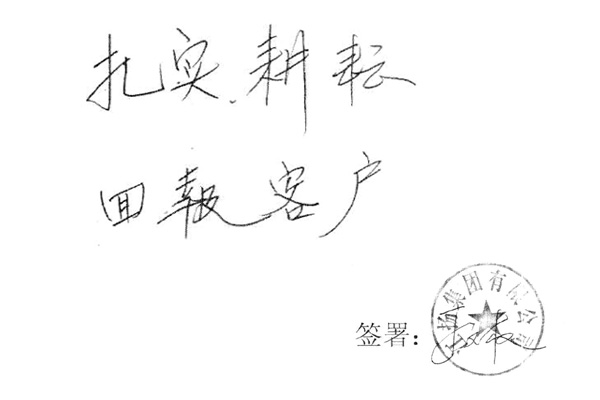 扎实耕耘
回報客户
签署：
集团有限公司